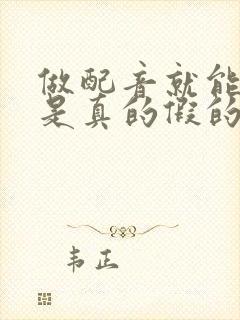 做配音就能
是真的假的
韦正